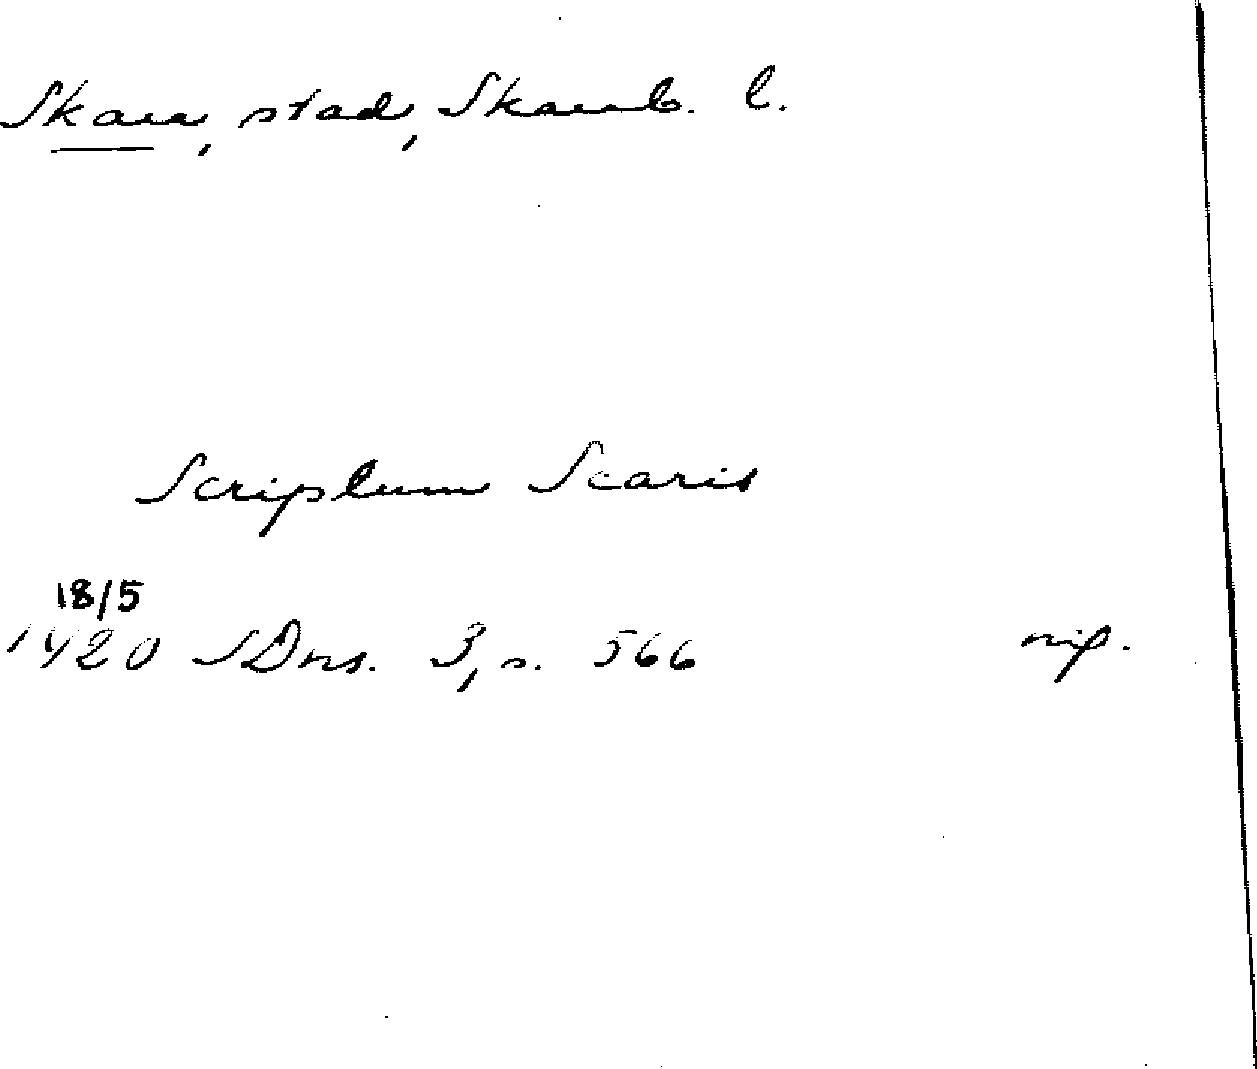 Skara, stad, Skarab. l.
Scriptum Scaris
18/5
1420 SDns. 3, s. 566 avp.